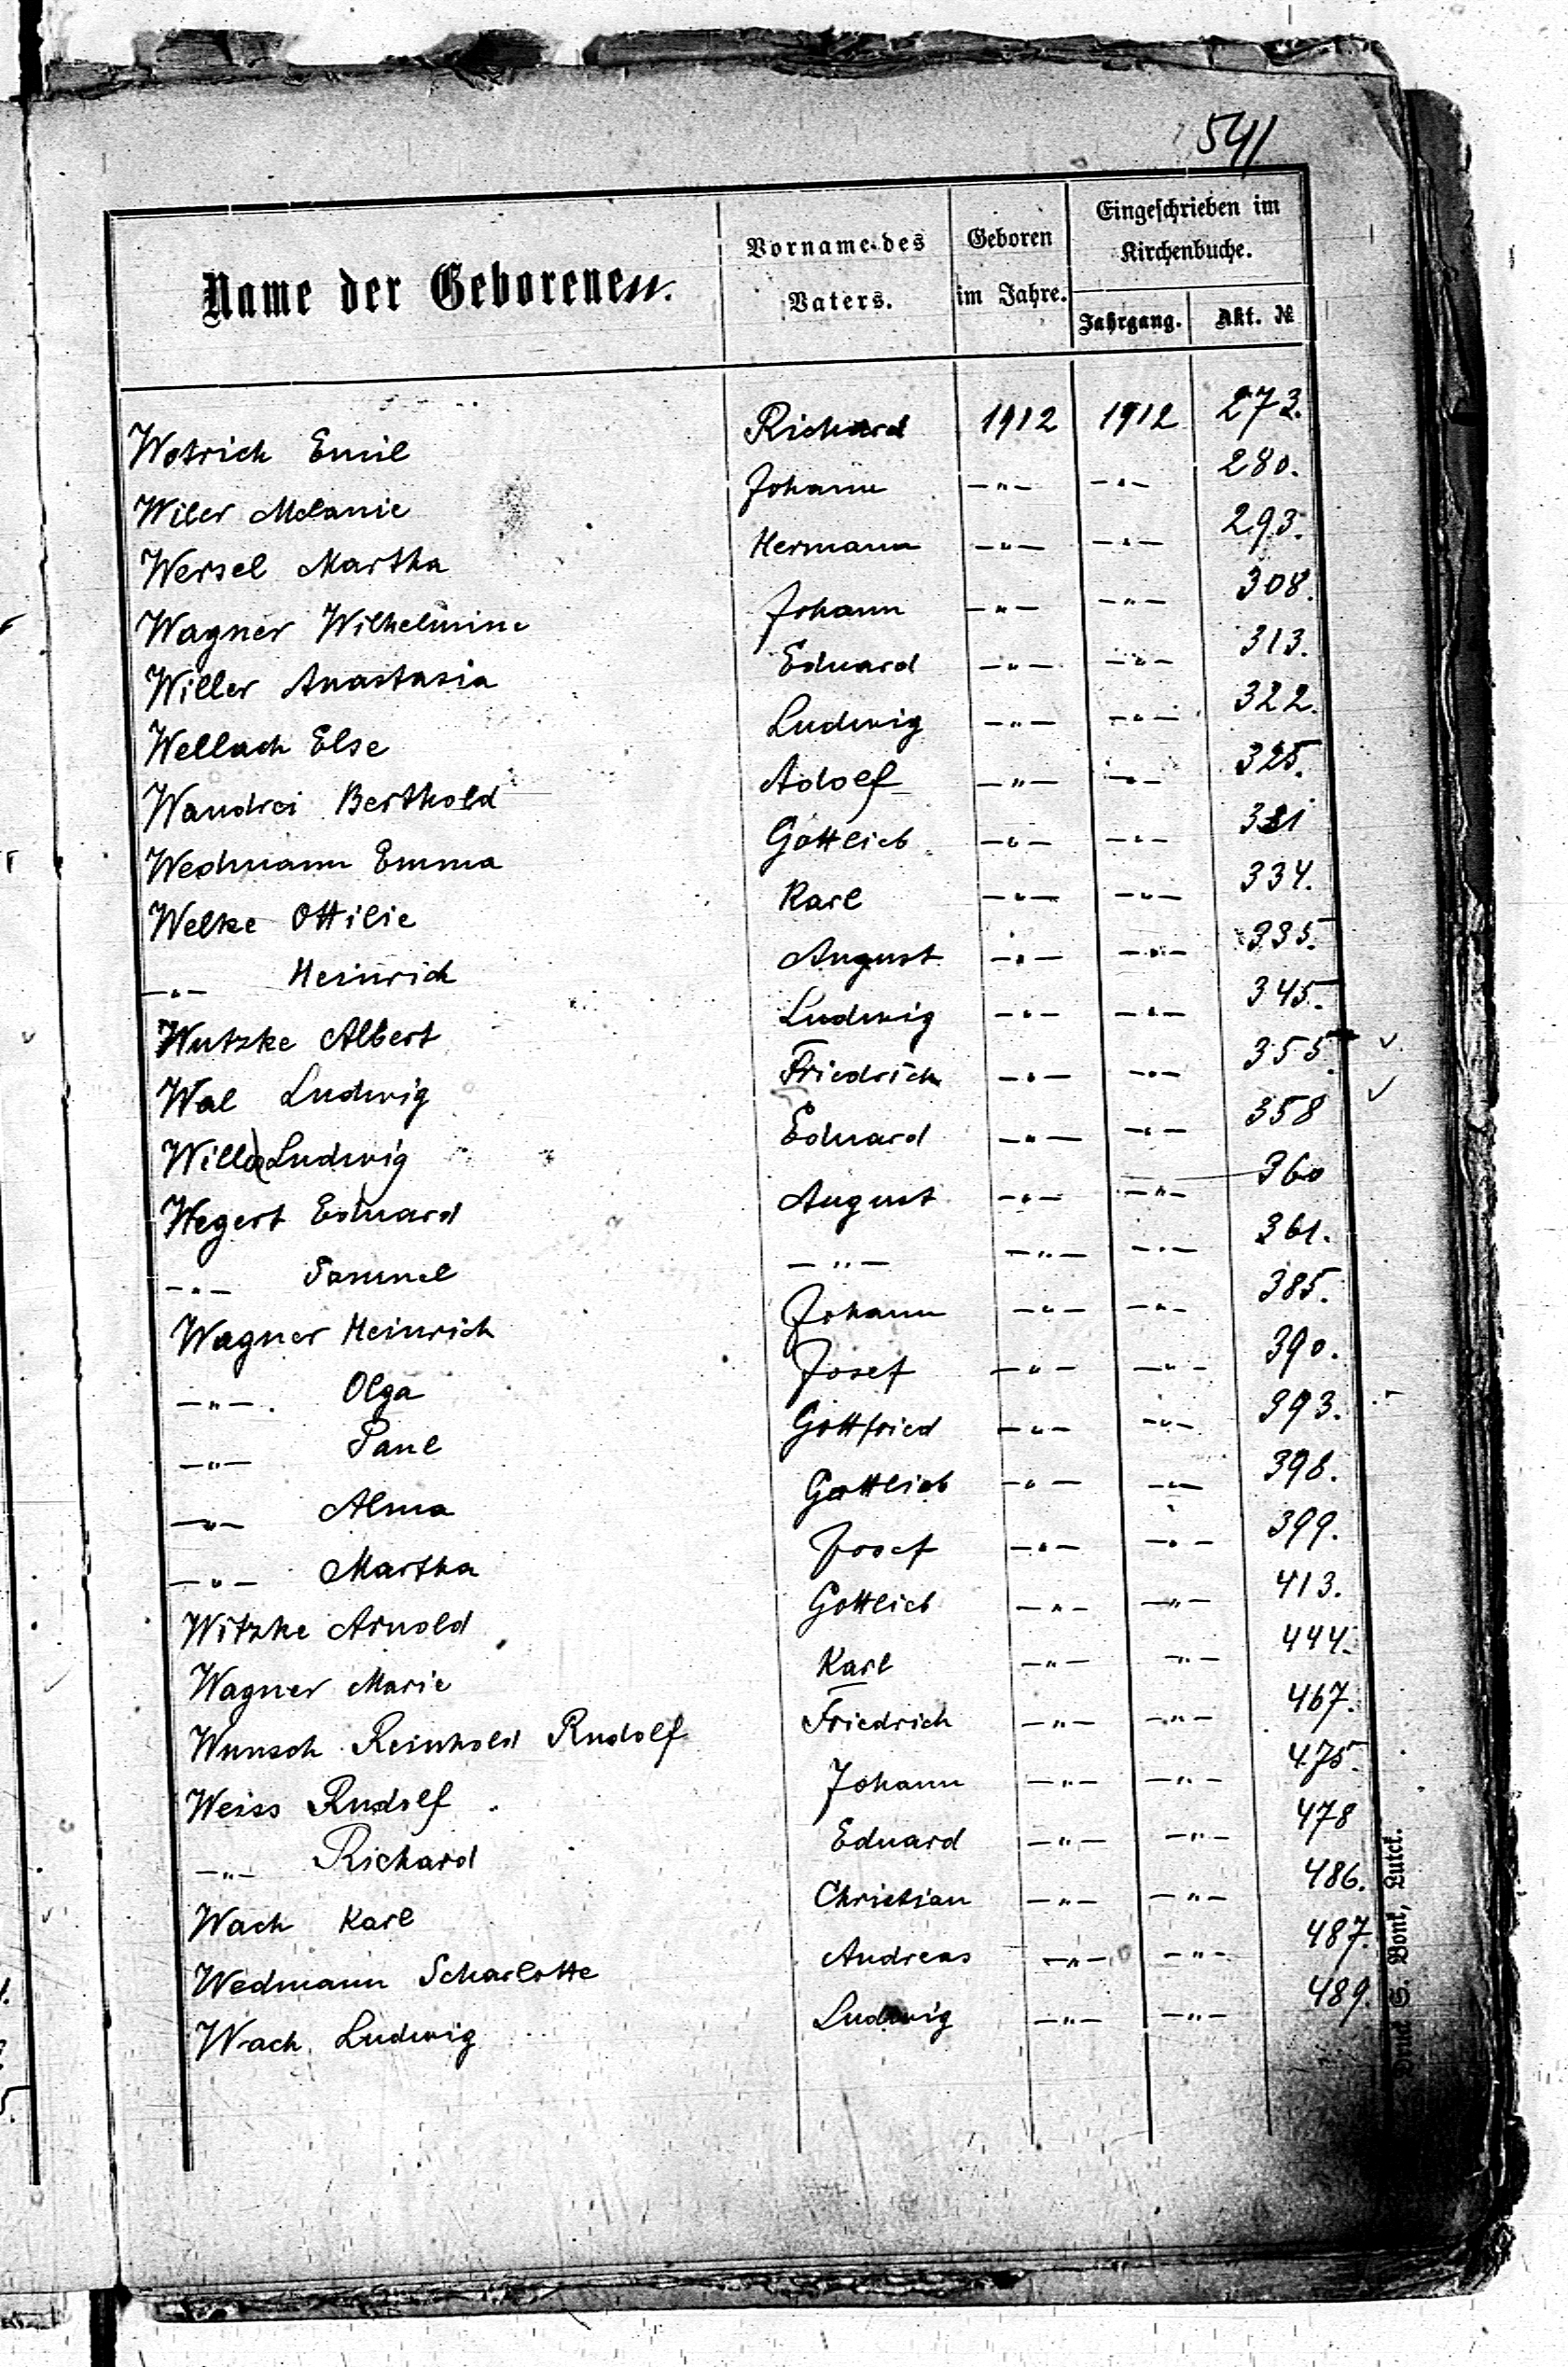 541
Name der Geborenen.
Vorname des Vaters.
Geboren im Jahre.
Eingeschrieben im Kirchenbuche.
Jahrgang. Akt. №
Wotrich Emil Richard 1912 1912 273.
Wiler Melanie Johann —"— —"— 280.
Wersel Martha Hermann —"— —"— 293.
Wagner Wilhelmine Johann —"— —"— 308.
Willer Anastasia Eduard —"— —"— 313.
Wellach Else Ludwig —"— —"— 322.
Wandrei Berthold Adolf —"— —"— 325.
Wedmann Emma Gottlieb —"— —"— 331
Welke Ottilie Karl —"— —"— 334.
—"— Heinrich August —"— —"— 335.
Wutzke Albert Ludwig —"— —"— 345.
Wal Ludwig Friedrich —"— —"— 355.
Willa Ludwig Eduard —"— —"— 358
Wegert Eduard August —"— —"— 360
—"— Samuel —"— —"— —"— 361.
Wagner Heinrich Johann —"— —"— 385.
—"— Olga Josef —"— —"— 390.
—"— Paul Gottfried —"— —"— 393.
—"— Alma Gottlieb —"— —"— 398.
—"— Martha Josef —"— —"— 399.
Witzke Arnold Gottlieb —"— —"— 413.
Wagner Marie Karl —"— —"— 444.
Wunsch Reinhold Rudolf Friedrich —"— —"— 467.
Weiss Rudolf Johann —"— —"— 475.
—"— Richard Eduard —"— —"— 478
Wach Karl Christian —"— —"— 486.
Wedmann Scharlotte Andreas —"— —"— 487.
Wach Ludwig Ludwig —"— —"— 489.
Druck S. Bont, Lutck.